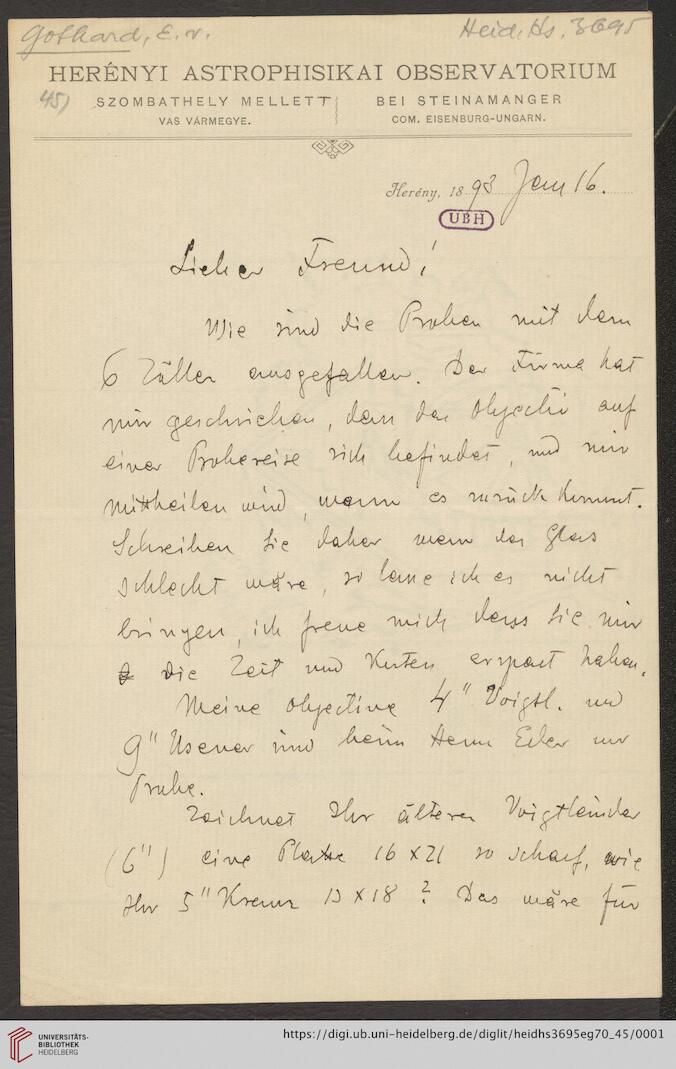 Gothard, E. v.
Heid. Hs. 3695
45)
HERÉNYI ASTROPHISIKAI OBSERVATORIUM
SZOMBATHELY MELLETT
BEI STEINAMANGER
VAS VÁRMEGYE.
COM. EISENBURG-UNGARN.
Herény, 1893 Jan 16.
UBH
Lieber Freund!
Wie sind die Proben mit dem
6 Zöller ausgefallen. Der Firma hat
mir geschrieben, dass das Objectiv auf
einer Probereise sich befindet, und mir
mittheilen wird, wann es zurück kommt.
Schreiben Sie daher wenn das Glas
schlecht wäre, so lasse ich es nicht
bringen, ich freue mich dass Sie mir
die Zeit und Kosten erspart haben.
Meine Objective 4" Voigtl. und
9" Usener sind beim Herrn Eder zur
Probe.
Zeichnet Ihr älterer Voigtländer
(6") eine Platte 16 x 21 so scharf, wie
Ihr 5" Kranz 13 x 18? Das wäre für
UNIVERSITÄTS-
BIBLIOTHEK
HEIDELBERG
https://digi.ub.uni-heidelberg.de/diglit/heidhs3695eg70_45/0001